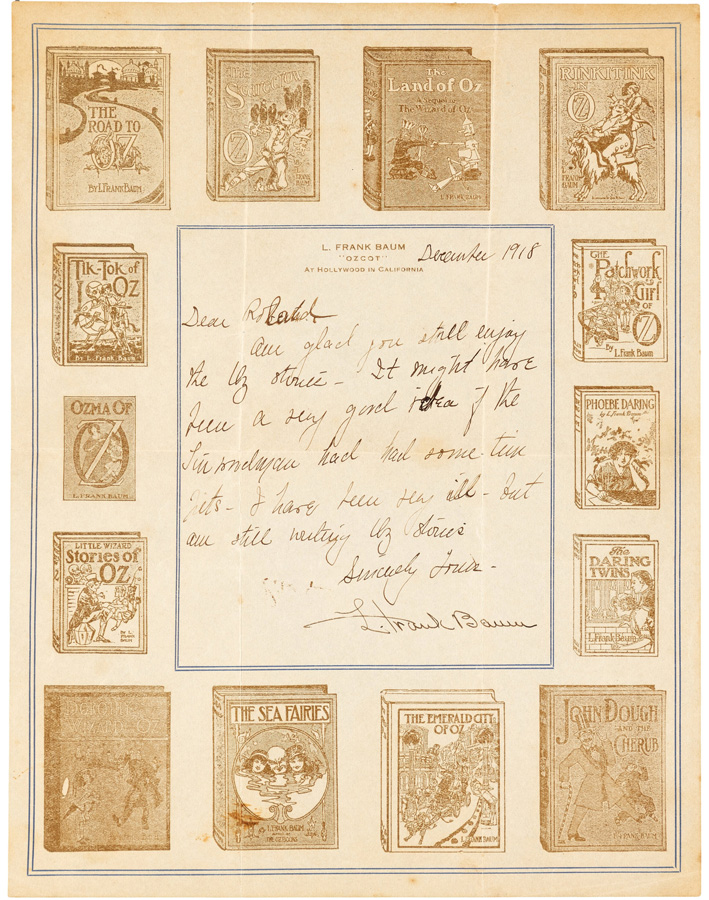 THE
ROAD TO
OZ
BY L. FRANK BAUM
THE
SCARECROW
OF
OZ
FRANK
BAUM
The
Land of Oz
A sequel to
The Wizard of Oz
L. FRANK BAUM
RINKITINK
IN
OZ
FRANK
BAUM
TIK-TOK of
OZ
By L. Frank Baum
OZMA OF
OZ
L. FRANK BAUM
LITTLE WIZARD
Stories of
OZ
By L.
FRANK
BAUM
L. FRANK BAUM
"OZCOT"
AT HOLLYWOOD IN CALIFORNIA
December 1918
Dear
Am glad you still enjoy
the Oz stories - It might have
been a very good idea if the
Tin Woodman had had some tin
- I have been very ill - but
am still writing Oz stories
Sincerely Yours -
L. Frank Baum
THE
Patchwork
Girl
OF
OZ
By L. Frank Baum
PHOEBE DARING
by L. Frank Baum
The
DARING
TWINS
By
L. Frank Baum
THE SEA FAIRIES
L. FRANK BAUM
THE OZ BOOKS
THE EMERALD CITY
OF OZ
L. FRANK BAUM
JOHN DOUGH
AND THE
CHERUB
L. FRANK BAUM